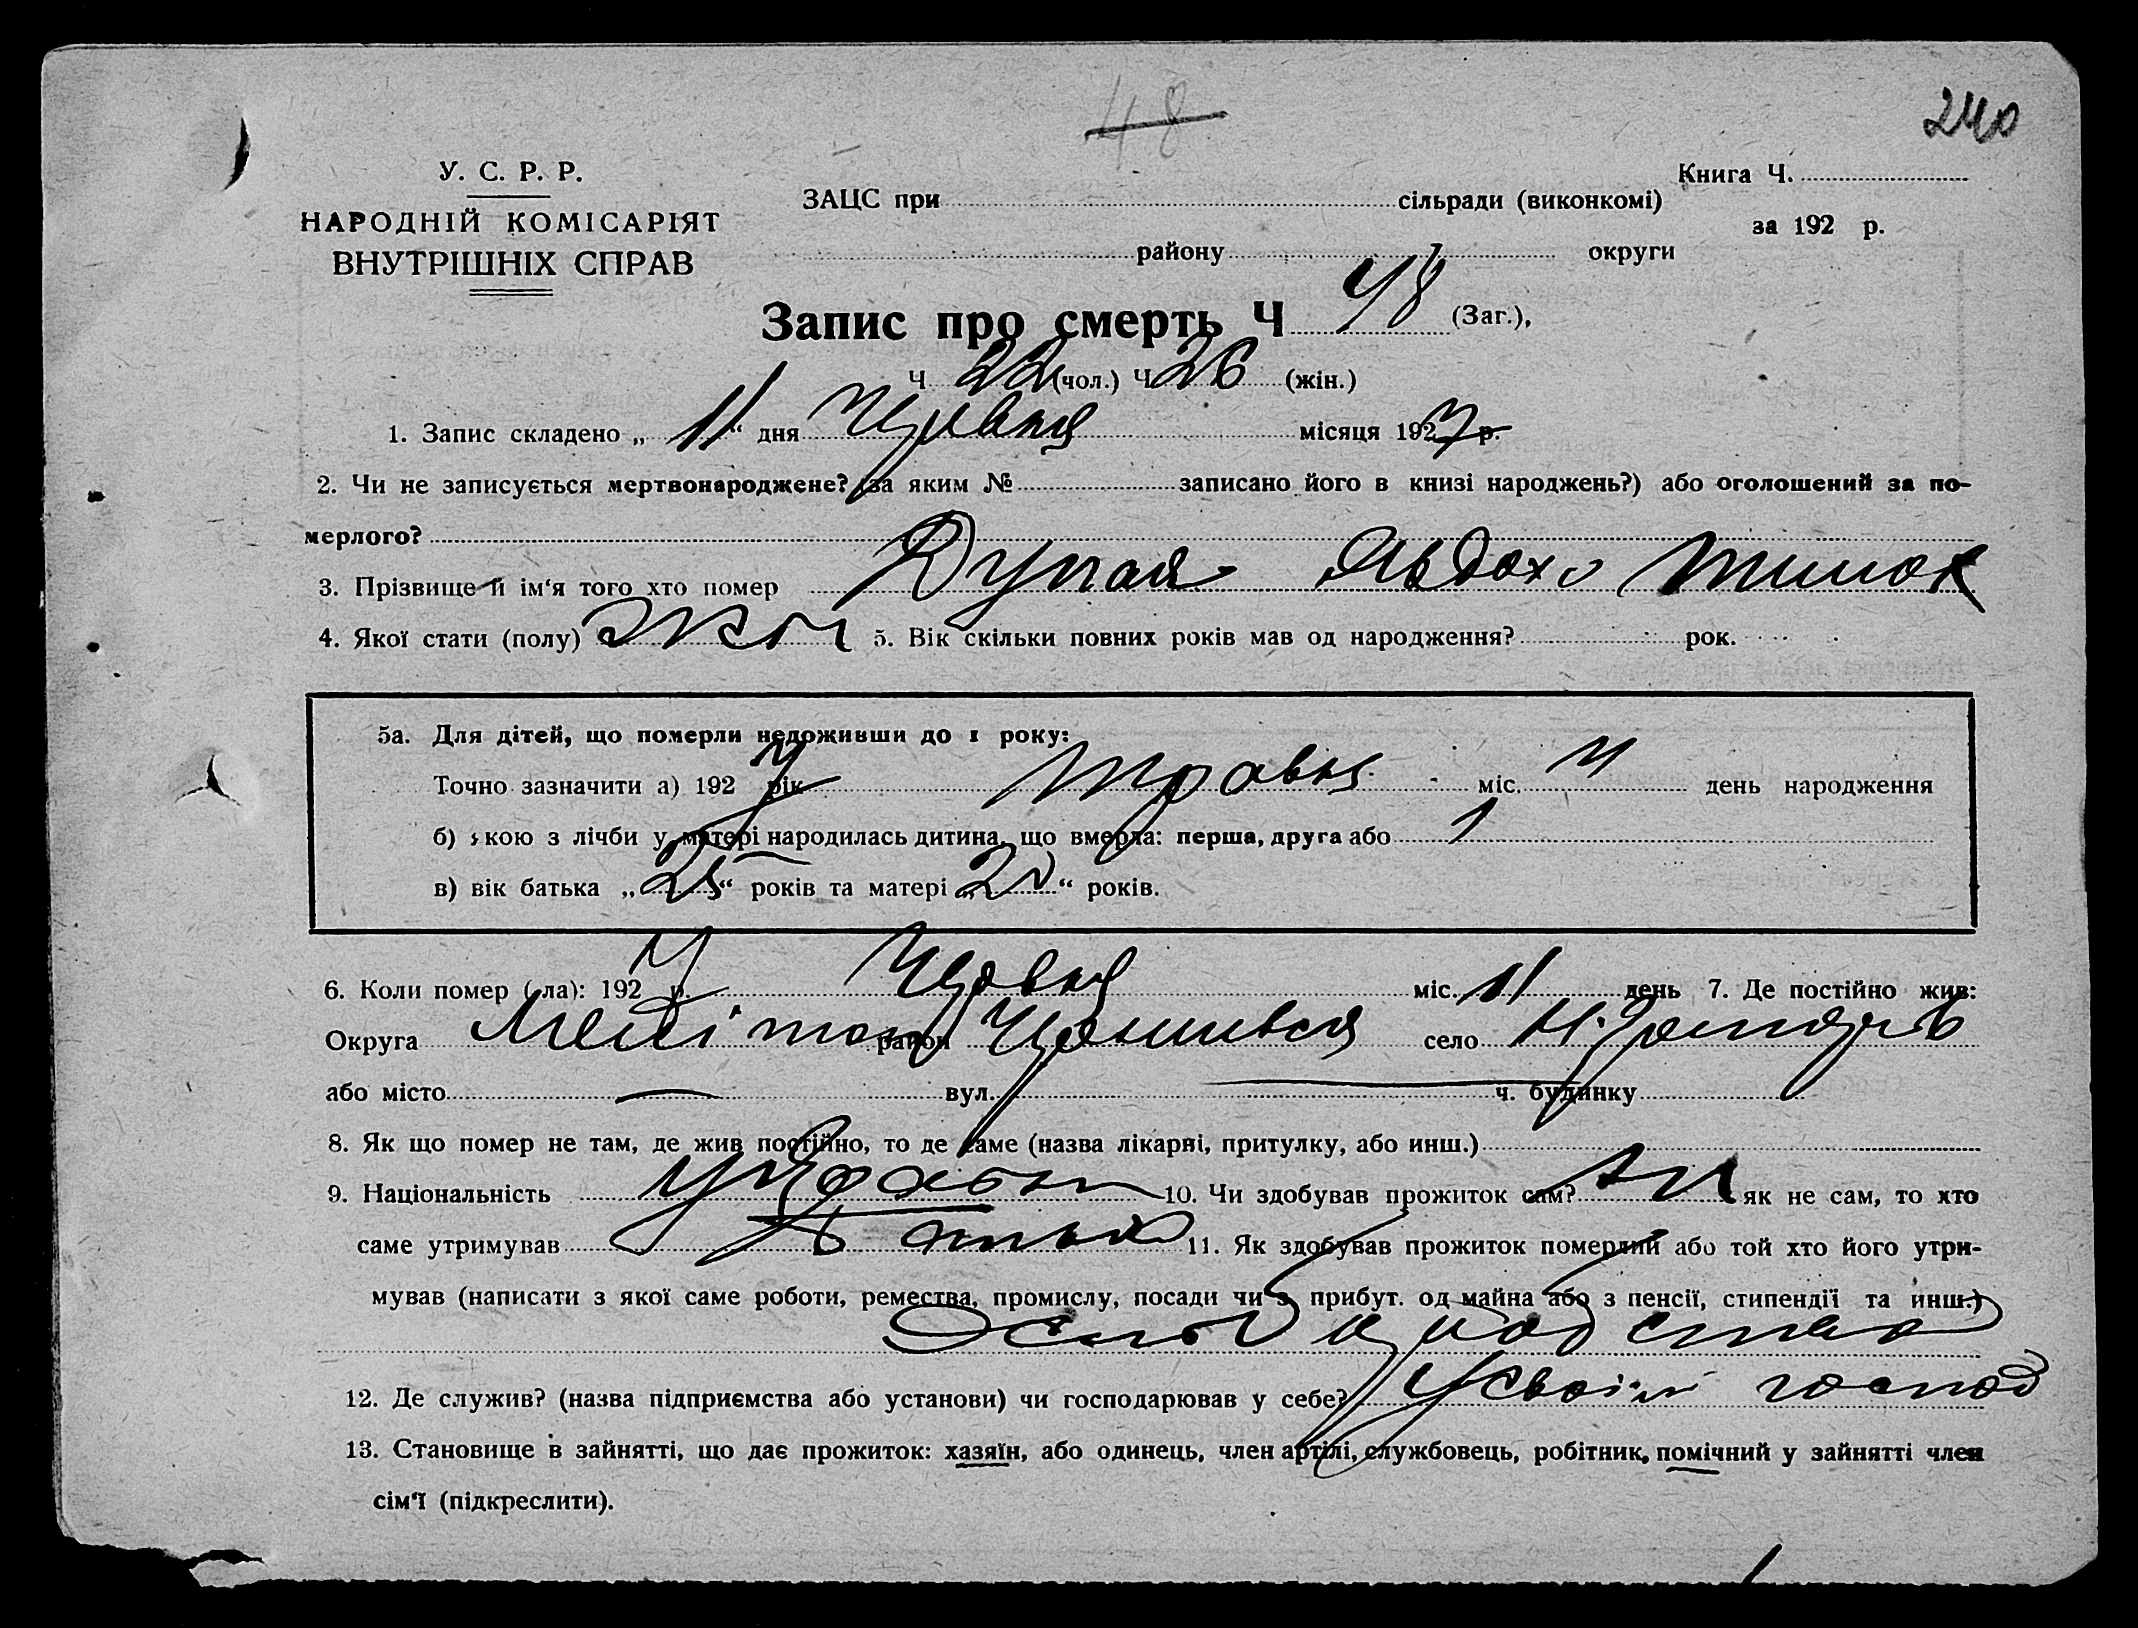 48
240
У. С. Р. Р.
НАРОДНІЙ КОМІСАРІЯТ
ВНУТРІШНІХ СПРАВ
Книга Ч.
ЗАЦС при сільради (виконкомі)
за 192 р.
району округи
Запис про смерть Ч 48 (Заг.),
Ч 22 (чол.) Ч 26 (жін.)
1. Запис складено „ 11 “ дня Червня місяця 1927 р.
2. Чи не записується мертвонароджене? (за яким № записано його в книзі народжень?) або оголошений за по-
мерлого?
3. Прізвище й ім‘я того хто помер Дупая Явдохо
4. Якої стати (полу) жін 5. Вік скільки повних років мав од народження? рок.
5а. Для дітей, що померли недоживши до 1 року:
Точно зазначити а) 1927 рік травня міс. день народження
б) якою з лічби у матері народилась дитина, що вмерла: перша, друга або 1
в) вік батька „ 25 “ років та матері „ 20 “ років.
6. Коли помер (-ла): 1927 р. Червня міс. 11 день 7. Де постійно жив:
Округа Мелітоп район село
або місто — вул. — ч. будинку
8. Як що помер не там, де жив постійно, то де саме (назва лікарні, притулку, або инш.)
9. Національність 10. Чи здобував прожиток сам? ні як не сам, то хто
саме утримував батько 11. Як здобував прожиток померлий або той хто його утри-
мував (написати з якої саме роботи, ремества, промислу, посади чи з прибут. од майна або з пенсії, стипендії та инш.)
12. Де служив? (назва підприємства або установи) чи господарював у себе? У своїм господ
13. Становище в зайнятті, що дає прожиток: хазяїн, або одинець, член артілі, службовець, робітник, помічний у зайнятті член
сім‘ї (підкреслити).